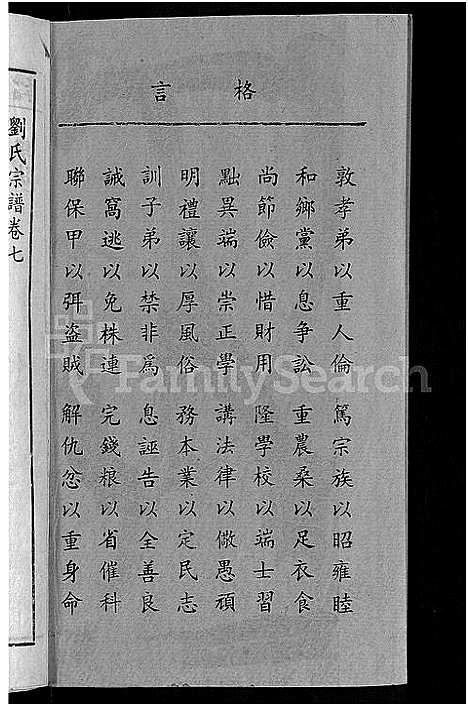 格言
敦孝弟以重人倫 篤宗族以昭雍睦
和鄉黨以息爭訟 重農桑以足衣食
尚節儉以惜財用 隆學校以端士習
黜異端以崇正學 講法律以儆愚頑
明禮讓以厚風俗 務本業以定民志
訓子弟以禁非為 息誣告以全善良
誡窩逃以免株連 完錢粮以省催科
聯保甲以弭盗賊 解仇忿以重身命
劉氏宗譜卷七
FamilySearch